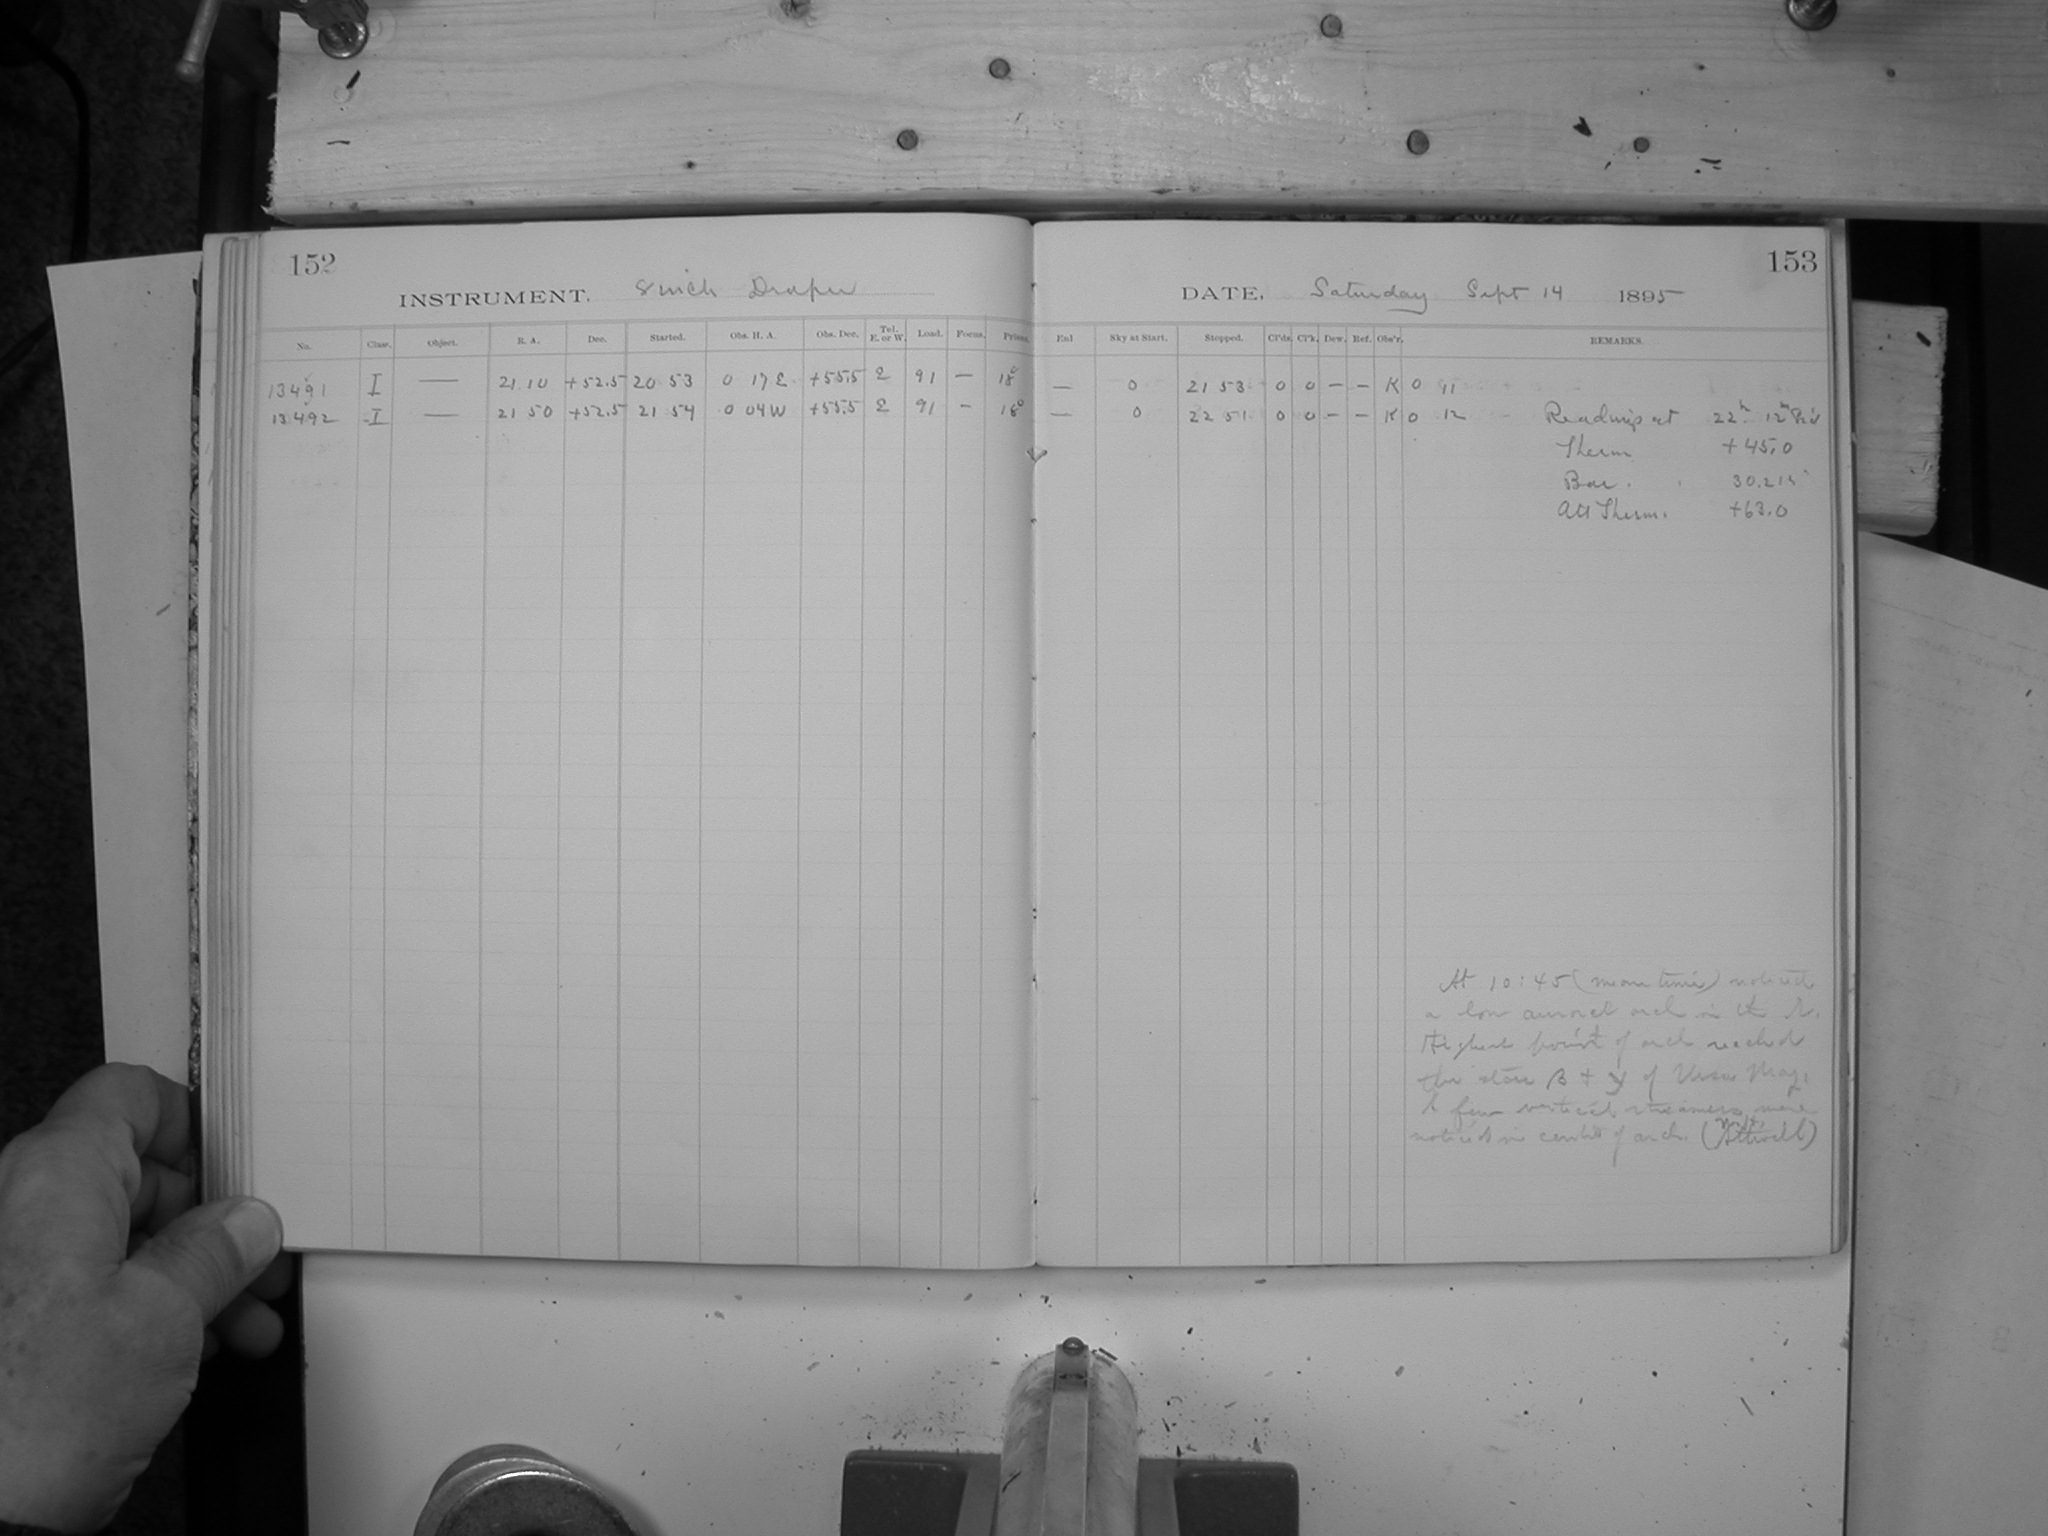 152
INSTRUMENT. 8 inch Draper
No. Class. Object. R. A. Dec. Started. Obs. H. A. Obs. Dec. Tel. E. or W. Load. Focus. Prism.
13491 I — 21 10 +52.5 20 53 0 17 E +55.5 E 91 — 18°
13492 I — 21 50 +52.5 21 54 0 04 W +55.5 E 91 – 18°
153
DATE, Saturday Sept 14 1895
Sky at Start. Stopped. Cl'ds. Cl'k. Dew. Ref. Obs'r. REMARKS.
— 0 21 53 0 0 – – K 0 11
— 0 22 51 0 0 – – K 0 12 Readings at 22h 12m Sid
Therm +45.0
Bar. 30.215
Att Therm. +63.0
At 10:45 (mean time) noticed
a low auroral arch in the N.
Highest point of arch reached
the stars β + γ of Ursa Maj.
A few vertical streamers were
noticed in center of arch. (Attwill)